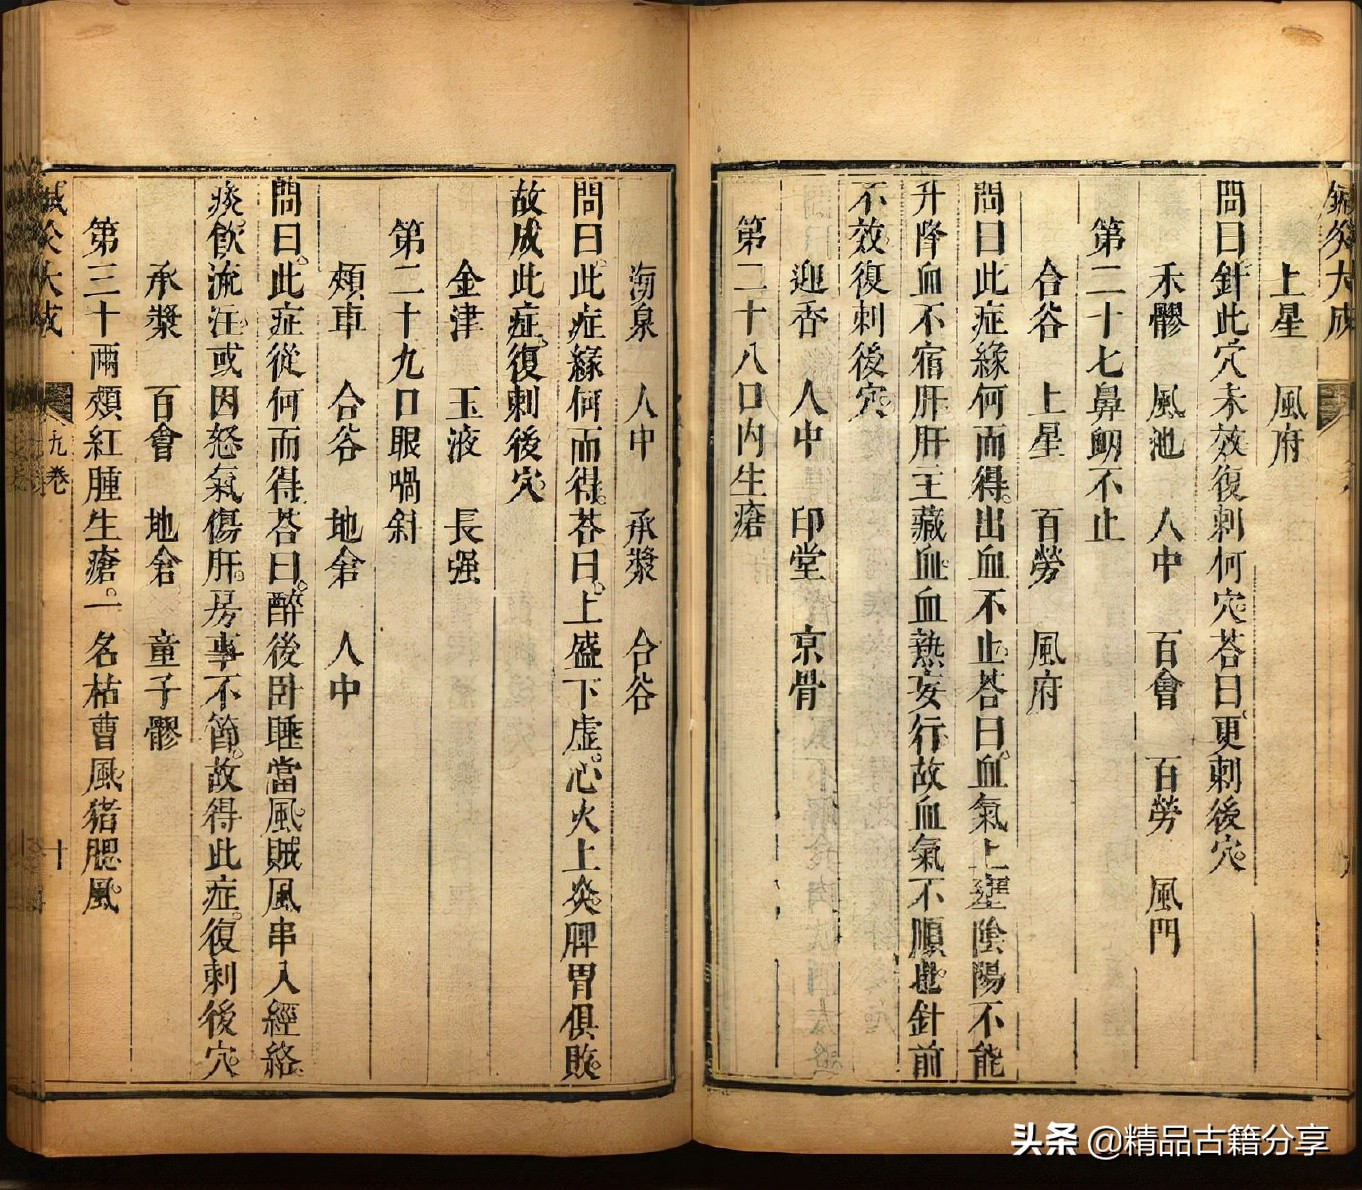 鍼灸大成
上星 風府
問曰針此穴未效復刺何穴荅曰更刺後穴
禾髎 風池 人中 百會 百勞 風門
第二十七鼻衂不止
合谷 上星 百勞 風府
問曰此症緣何而得出血不止荅曰血氣上壅陰陽不能
升降血不宿肝肝主藏血血熱妄行故血氣不順也針前
不效復刺後穴
迎香 人中 印堂 京骨
第二十八口内生瘡
海泉 人中 承漿 合谷
問曰此症緣何而得荅曰上盛下虛心火上炎脾胃俱敗
故成此症復刺後穴
金津 玉液 長强
第二十九口眼喎斜
頰車 合谷 地倉 人中
問曰此症從何而得荅曰醉後卧睡當風賊風串入經絡
痰飲流注或因怒氣傷肝房事不節故得此症復刺後穴
承漿 百會 地倉 童子髎
第三十兩頰紅腫生瘡一名枯曹風猪腮風
鍼灸大成 九卷 十
头条 @精品古籍分享